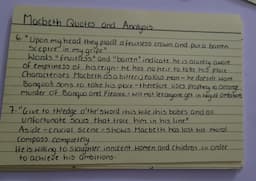 Macbeth Quotes and Analysis
6. "Upon my head they placed a fruitless crown and put a barren
sceptre in my gripe"
Words "fruitless" and "barren" indicate he is acutely aware
of emptiness of his reign - he has no heir to take his place
Characterises Macbeth as a bitter, jealous man - he doesn't want
Banquo's sons to take his place - therefore uses prophecy to arrange
murder of Banquo and Fleance. Will not let anyone get in way of ambitions.
7. "Give to th'edge o'the sword His wife, his babes and all
unfortunate souls that trace him in his line"
Aside - crucial scene - shows Macbeth has lost his moral
compass completely
He is willing to slaughter innocent women and children in order
to achieve his ambitions.